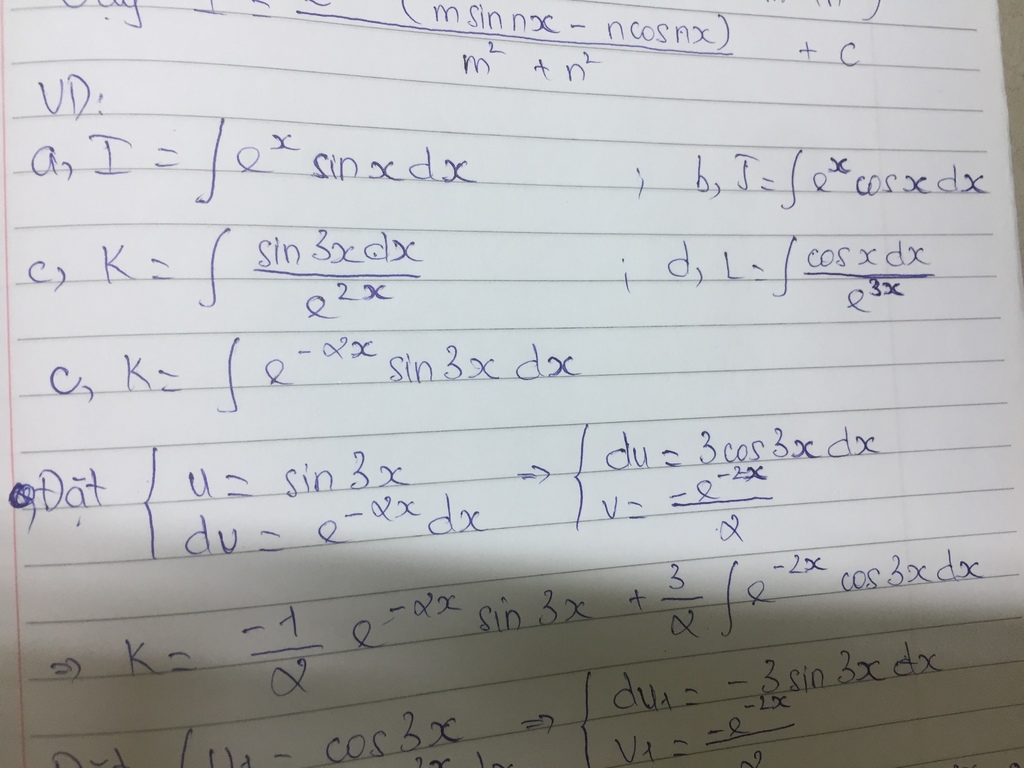 I = (m sin nx - n cos nx) / (m² + n²) + C
VD:
a, I = ∫ e^x sin x dx ; b, J = ∫ e^x cos x dx
c, K = ∫ (sin 3x dx) / e^(2x) ; d, L = ∫ (cos x dx) / e^(3x)
c, K = ∫ e^(-2x) sin 3x dx
Đặt { u = sin 3x ; dv = e^(-2x) dx => { du = 3 cos 3x dx ; v = -e^(-2x) / 2
=> K = -1/2 e^(-2x) sin 3x + 3/2 ∫ e^(-2x) cos 3x dx
{ u1 = cos 3x => { du1 = -3 sin 3x dx ; v1 = -e^(-2x) / 2